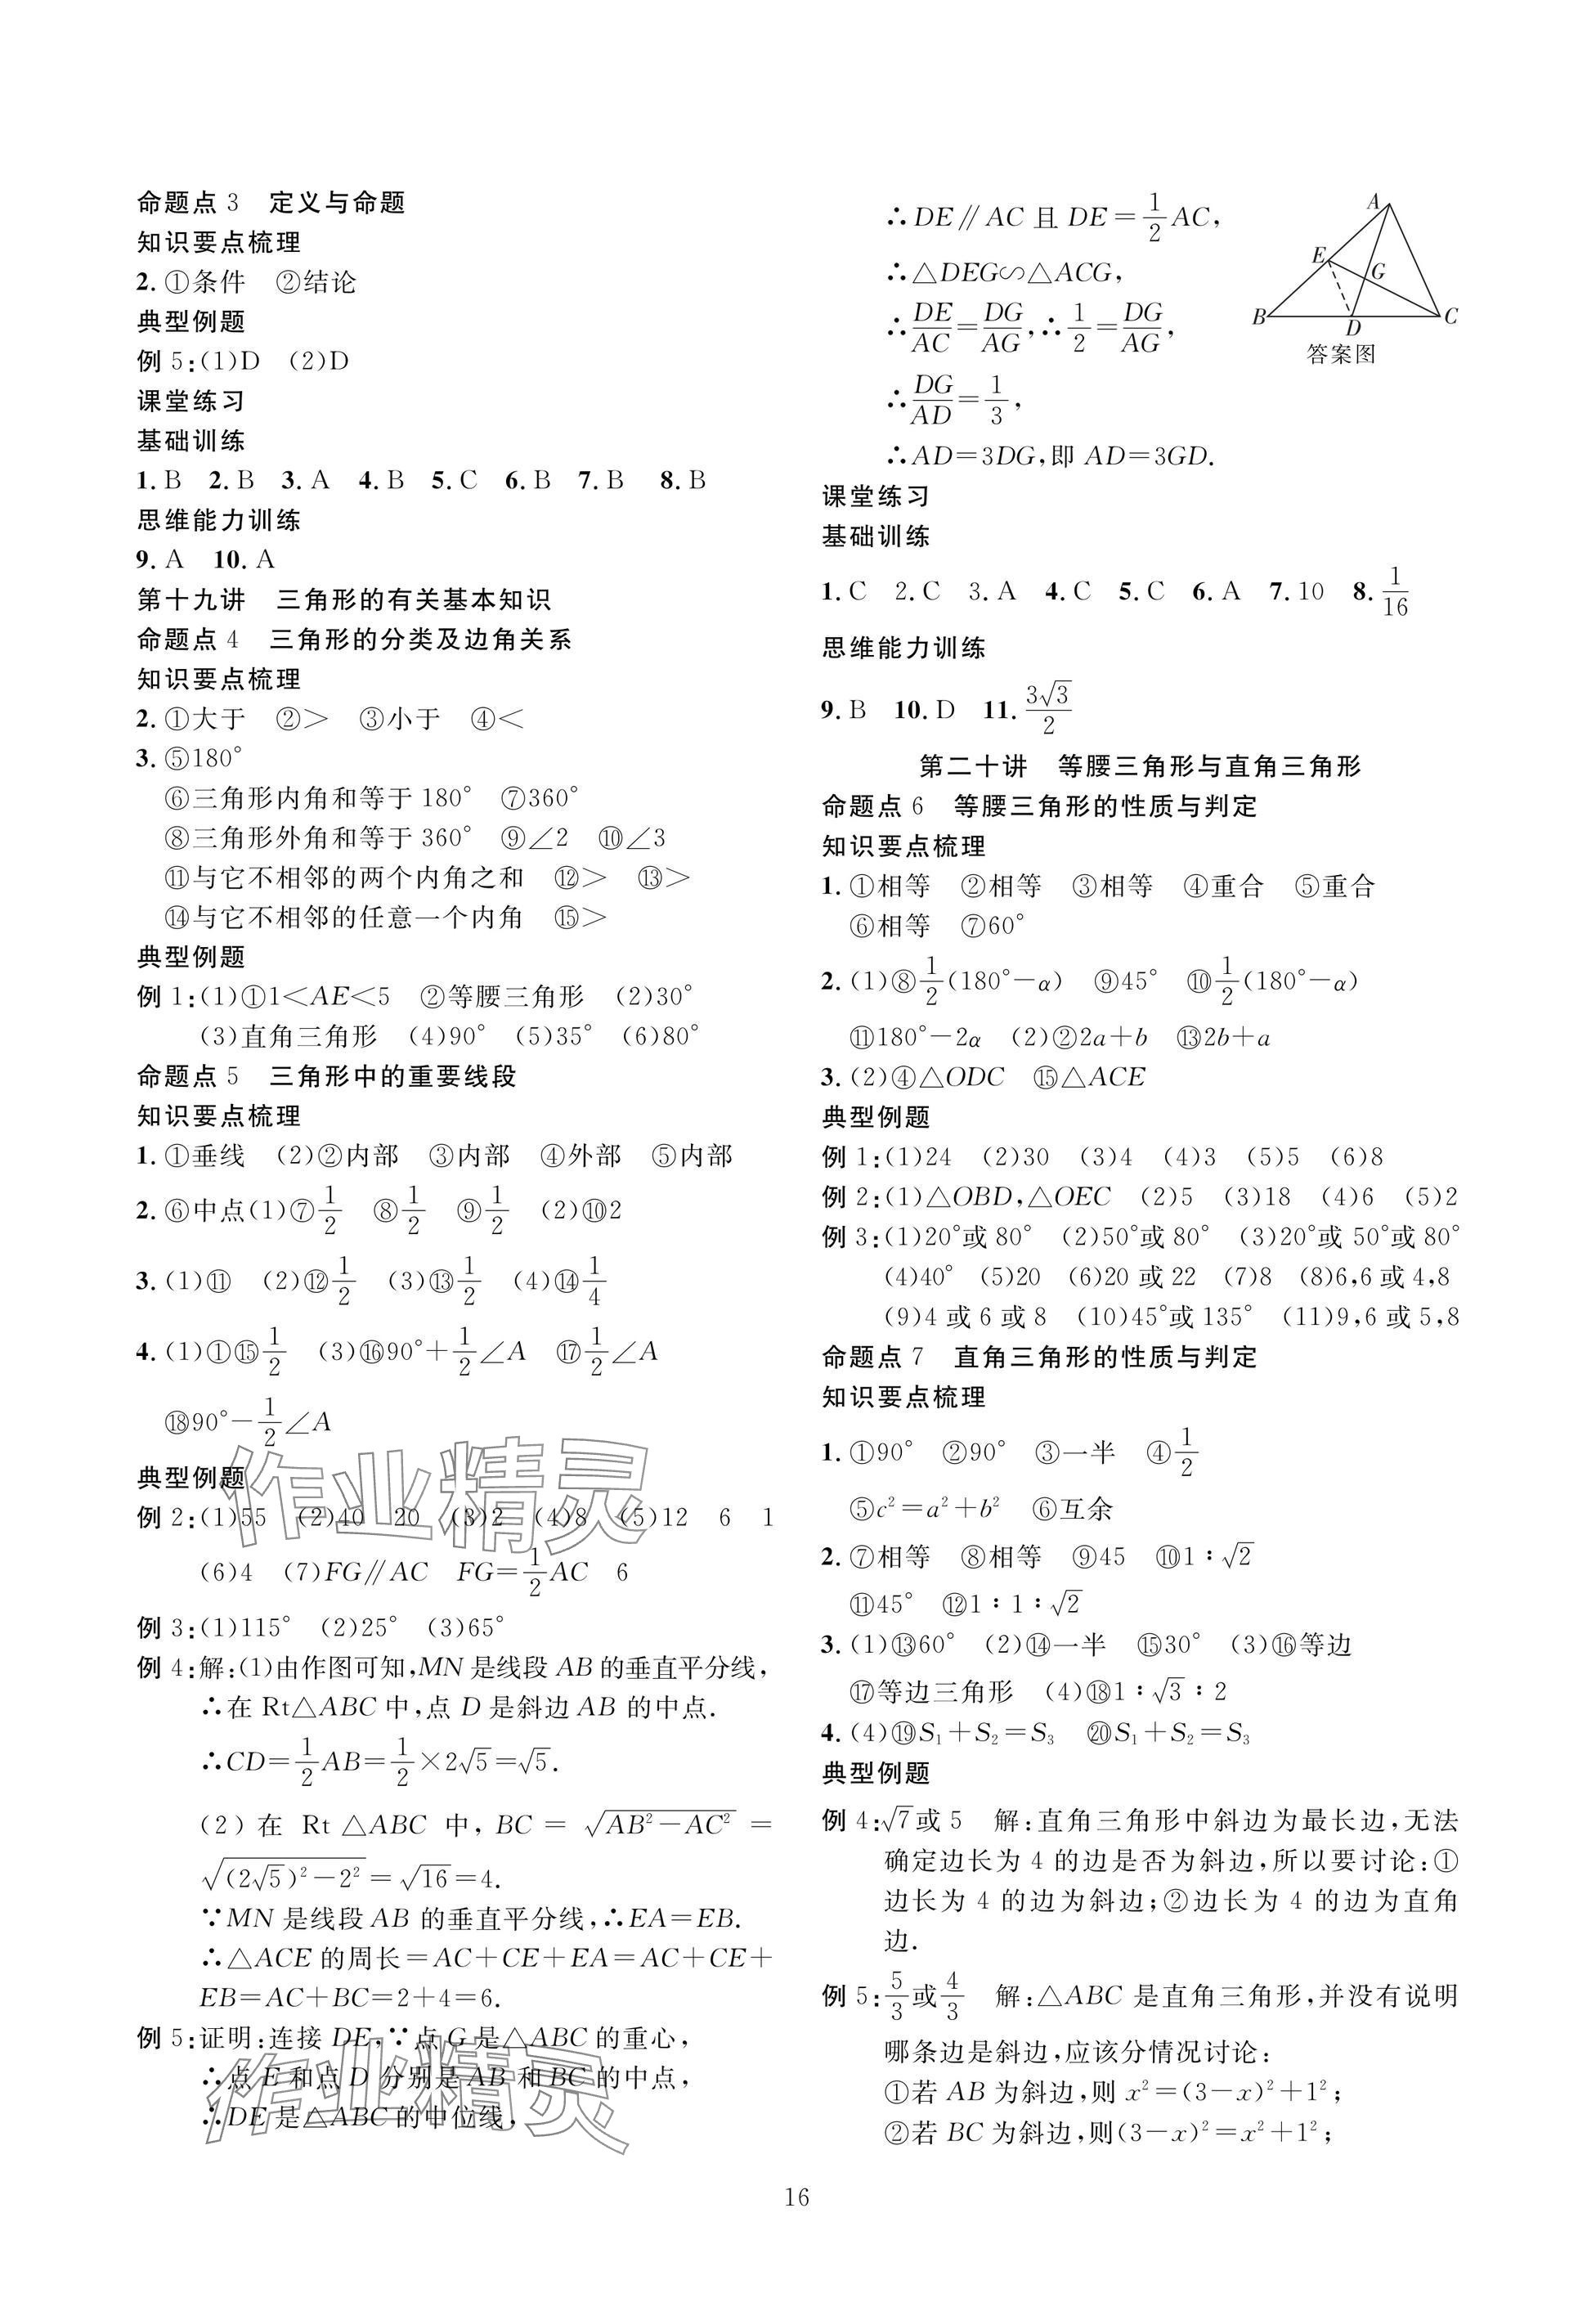 命题点 3　定义与命题
知识要点梳理
2. ①条件　②结论
典型例题
例 5:(1)D　(2)D
课堂练习
基础训练
1. B　2. B　3. A　4. B　5. C　6. B　7. B　8. B
思维能力训练
9. A　10. A
第十九讲　三角形的有关基本知识
命题点 4　三角形的分类及边角关系
知识要点梳理
2. ①大于　②＞　③小于　④＜
3. ⑤180°
⑥三角形内角和等于 180°　⑦360°
⑧三角形外角和等于 360°　⑨∠2　⑩∠3
⑪与它不相邻的两个内角之和　⑫＞　⑬＞
⑭与它不相邻的任意一个内角　⑮＞
典型例题
例 1:(1)①1＜AE＜5　②等腰三角形　(2)30°
(3)直角三角形　(4)90°　(5)35°　(6)80°
命题点 5　三角形中的重要线段
知识要点梳理
1. ①垂线　(2)②内部　③内部　④外部　⑤内部
2. ⑥中点(1)⑦1/2　⑧1/2　⑨1/2　(2)⑩2
3. (1)⑪　(2)⑫1/2　(3)⑬1/2　(4)⑭1/4
4. (1)①⑮1/2　(3)⑯90°+1/2∠A　⑰1/2∠A
⑱90°−1/2∠A
典型例题
例 2:(1)55　(2)40　20　(3)2　(4)8　(5)12　6　1
(6)4　(7)FG∥AC　FG=1/2AC　6
例 3:(1)115°　(2)25°　(3)65°
例 4:解:(1)由作图可知,MN 是线段 AB 的垂直平分线,
∴在 Rt△ABC 中,点 D 是斜边 AB 的中点.
∴CD=1/2AB=1/2×2√5=√5.
(2) 在 Rt △ABC 中, BC = √(AB²−AC²) =
√((2√5)²−2²)=√16=4.
∵MN 是线段 AB 的垂直平分线,∴EA=EB.
∴△ACE 的周长=AC+CE+EA=AC+CE+
EB=AC+BC=2+4=6.
例 5:证明:连接 DE,∵点 G 是△ABC 的重心,
∴点 E 和点 D 分别是 AB 和 BC 的中点,
∴DE 是△ABC 的中位线,
∴DE∥AC 且 DE=1/2AC,
∴△DEG∽△ACG,
∴DE/AC=DG/AG,∴1/2=DG/AG,
∴DG/AD=1/3,
∴AD=3DG,即 AD=3GD.
A
E
G
B
D
C
答案图
课堂练习
基础训练
1. C　2. C　3. A　4. C　5. C　6. A　7. 10　8. 1/16
思维能力训练
9. B　10. D　11. 3√3/2
第二十讲　等腰三角形与直角三角形
命题点 6　等腰三角形的性质与判定
知识要点梳理
1. ①相等　②相等　③相等　④重合　⑤重合
⑥相等　⑦60°
2. (1)⑧1/2(180°−α)　⑨45°　⑩1/2(180°−α)
⑪180°−2α　(2)②2a+b　⑬2b+a
3. (2)④△ODC　⑮△ACE
典型例题
例 1:(1)24　(2)30　(3)4　(4)3　(5)5　(6)8
例 2:(1)△OBD,△OEC　(2)5　(3)18　(4)6　(5)2
例 3:(1)20°或 80°　(2)50°或 80°　(3)20°或 50°或 80°
(4)40°　(5)20　(6)20 或 22　(7)8　(8)6,6 或 4,8
(9)4 或 6 或 8　(10)45°或 135°　(11)9,6 或 5,8
命题点 7　直角三角形的性质与判定
知识要点梳理
1. ①90°　②90°　③一半　④1/2
⑤c²=a²+b²　⑥互余
2. ⑦相等　⑧相等　⑨45　⑩1∶√2
⑪45°　⑫1∶1∶√2
3. (1)⑬60°　(2)⑭一半　⑮30°　(3)⑯等边
⑰等边三角形　(4)⑱1∶√3∶2
4. (4)⑲S₁+S₂=S₃　⑳S₁+S₂=S₃
典型例题
例 4:√7或 5　解:直角三角形中斜边为最长边,无法
确定边长为 4 的边是否为斜边,所以要讨论:①
边长为 4 的边为斜边;②边长为 4 的边为直角
边.
例 5:5/3或4/3　解:△ABC 是直角三角形,并没有说明
哪条边是斜边,应该分情况讨论:
①若 AB 为斜边,则 x²=(3−x)²+1²;
②若 BC 为斜边,则(3−x)²=x²+1²;
16
作业精灵
作业精灵